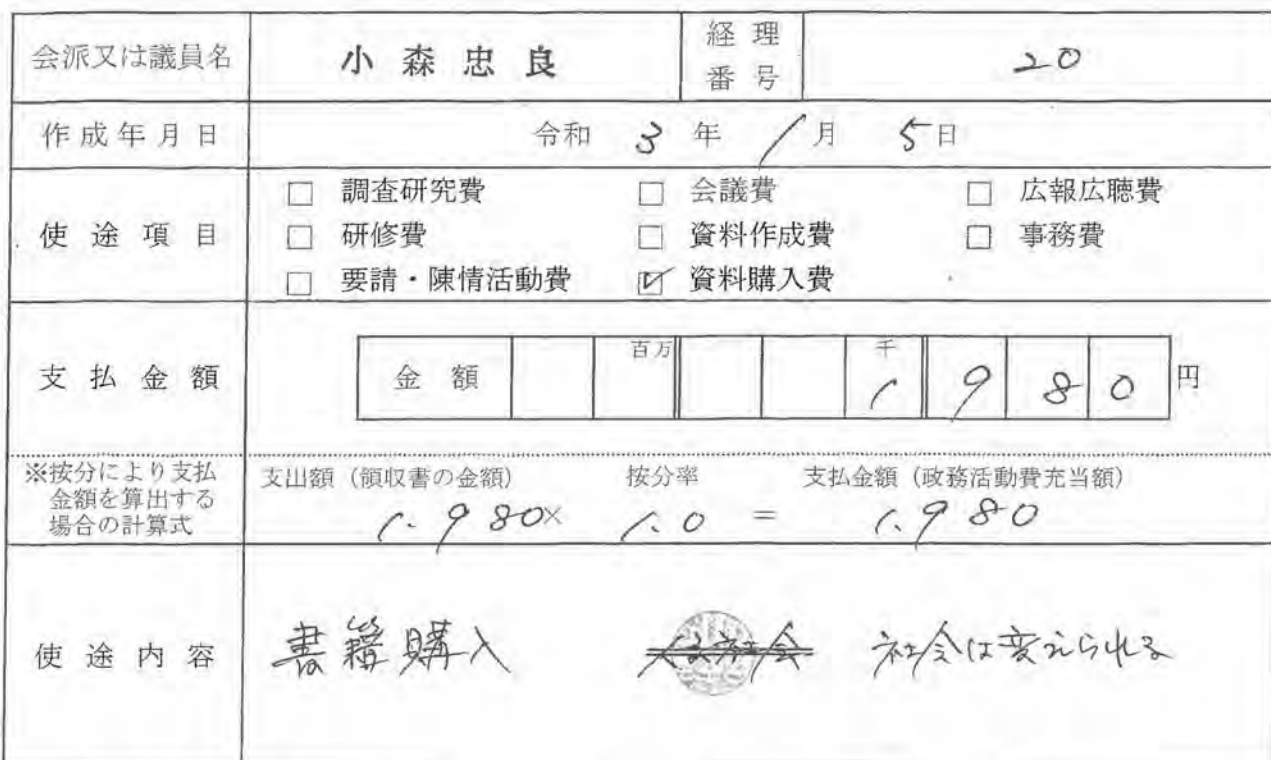 会派又は議員名 小森忠良 経理番号 20
作成年月日 令和 3 年 1 月 5 日
使途項目
□ 調査研究費 □ 会議費 □ 広報広聴費
□ 研修費 □ 資料作成費 □ 事務費
□ 要請・陳情活動費 ☑ 資料購入費
支払金額 金額 百万 千 1 9 8 0 円
※按分により支払金額を算出する場合の計算式
支出額（領収書の金額） 按分率 支払金額（政務活動費充当額）
1.980× 1.0 = 1.980
使途内容 書籍購入 社会は変えられる